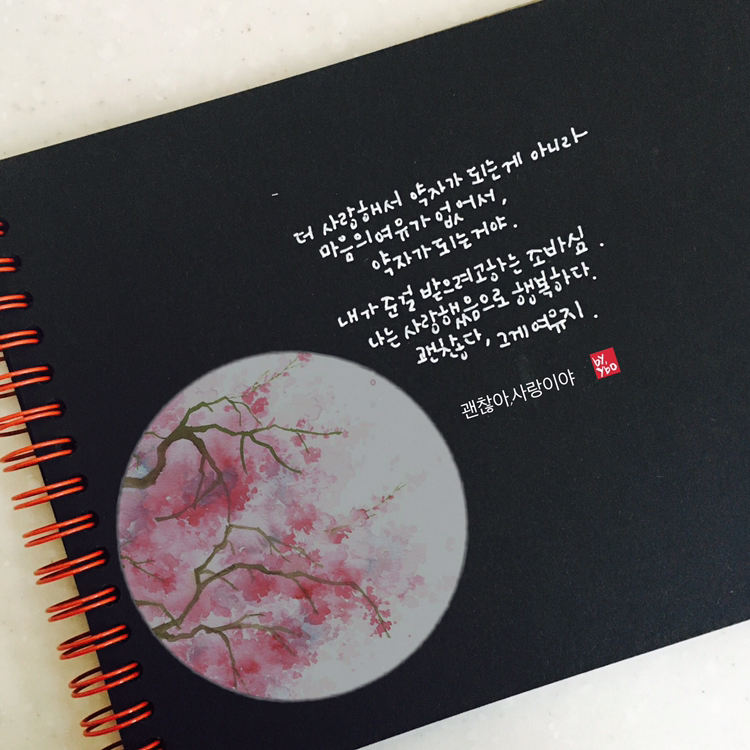 더 사랑해서 약자가 되는게 아니라
마음의 여유가 없어서,
약자가 되는거야.
내가 준걸 받으려고하는 조바심.
나는 사랑했음으로 행복하다.
괜찮다, 그게 여유지.
괜찮아,사랑이야
by.
ybo